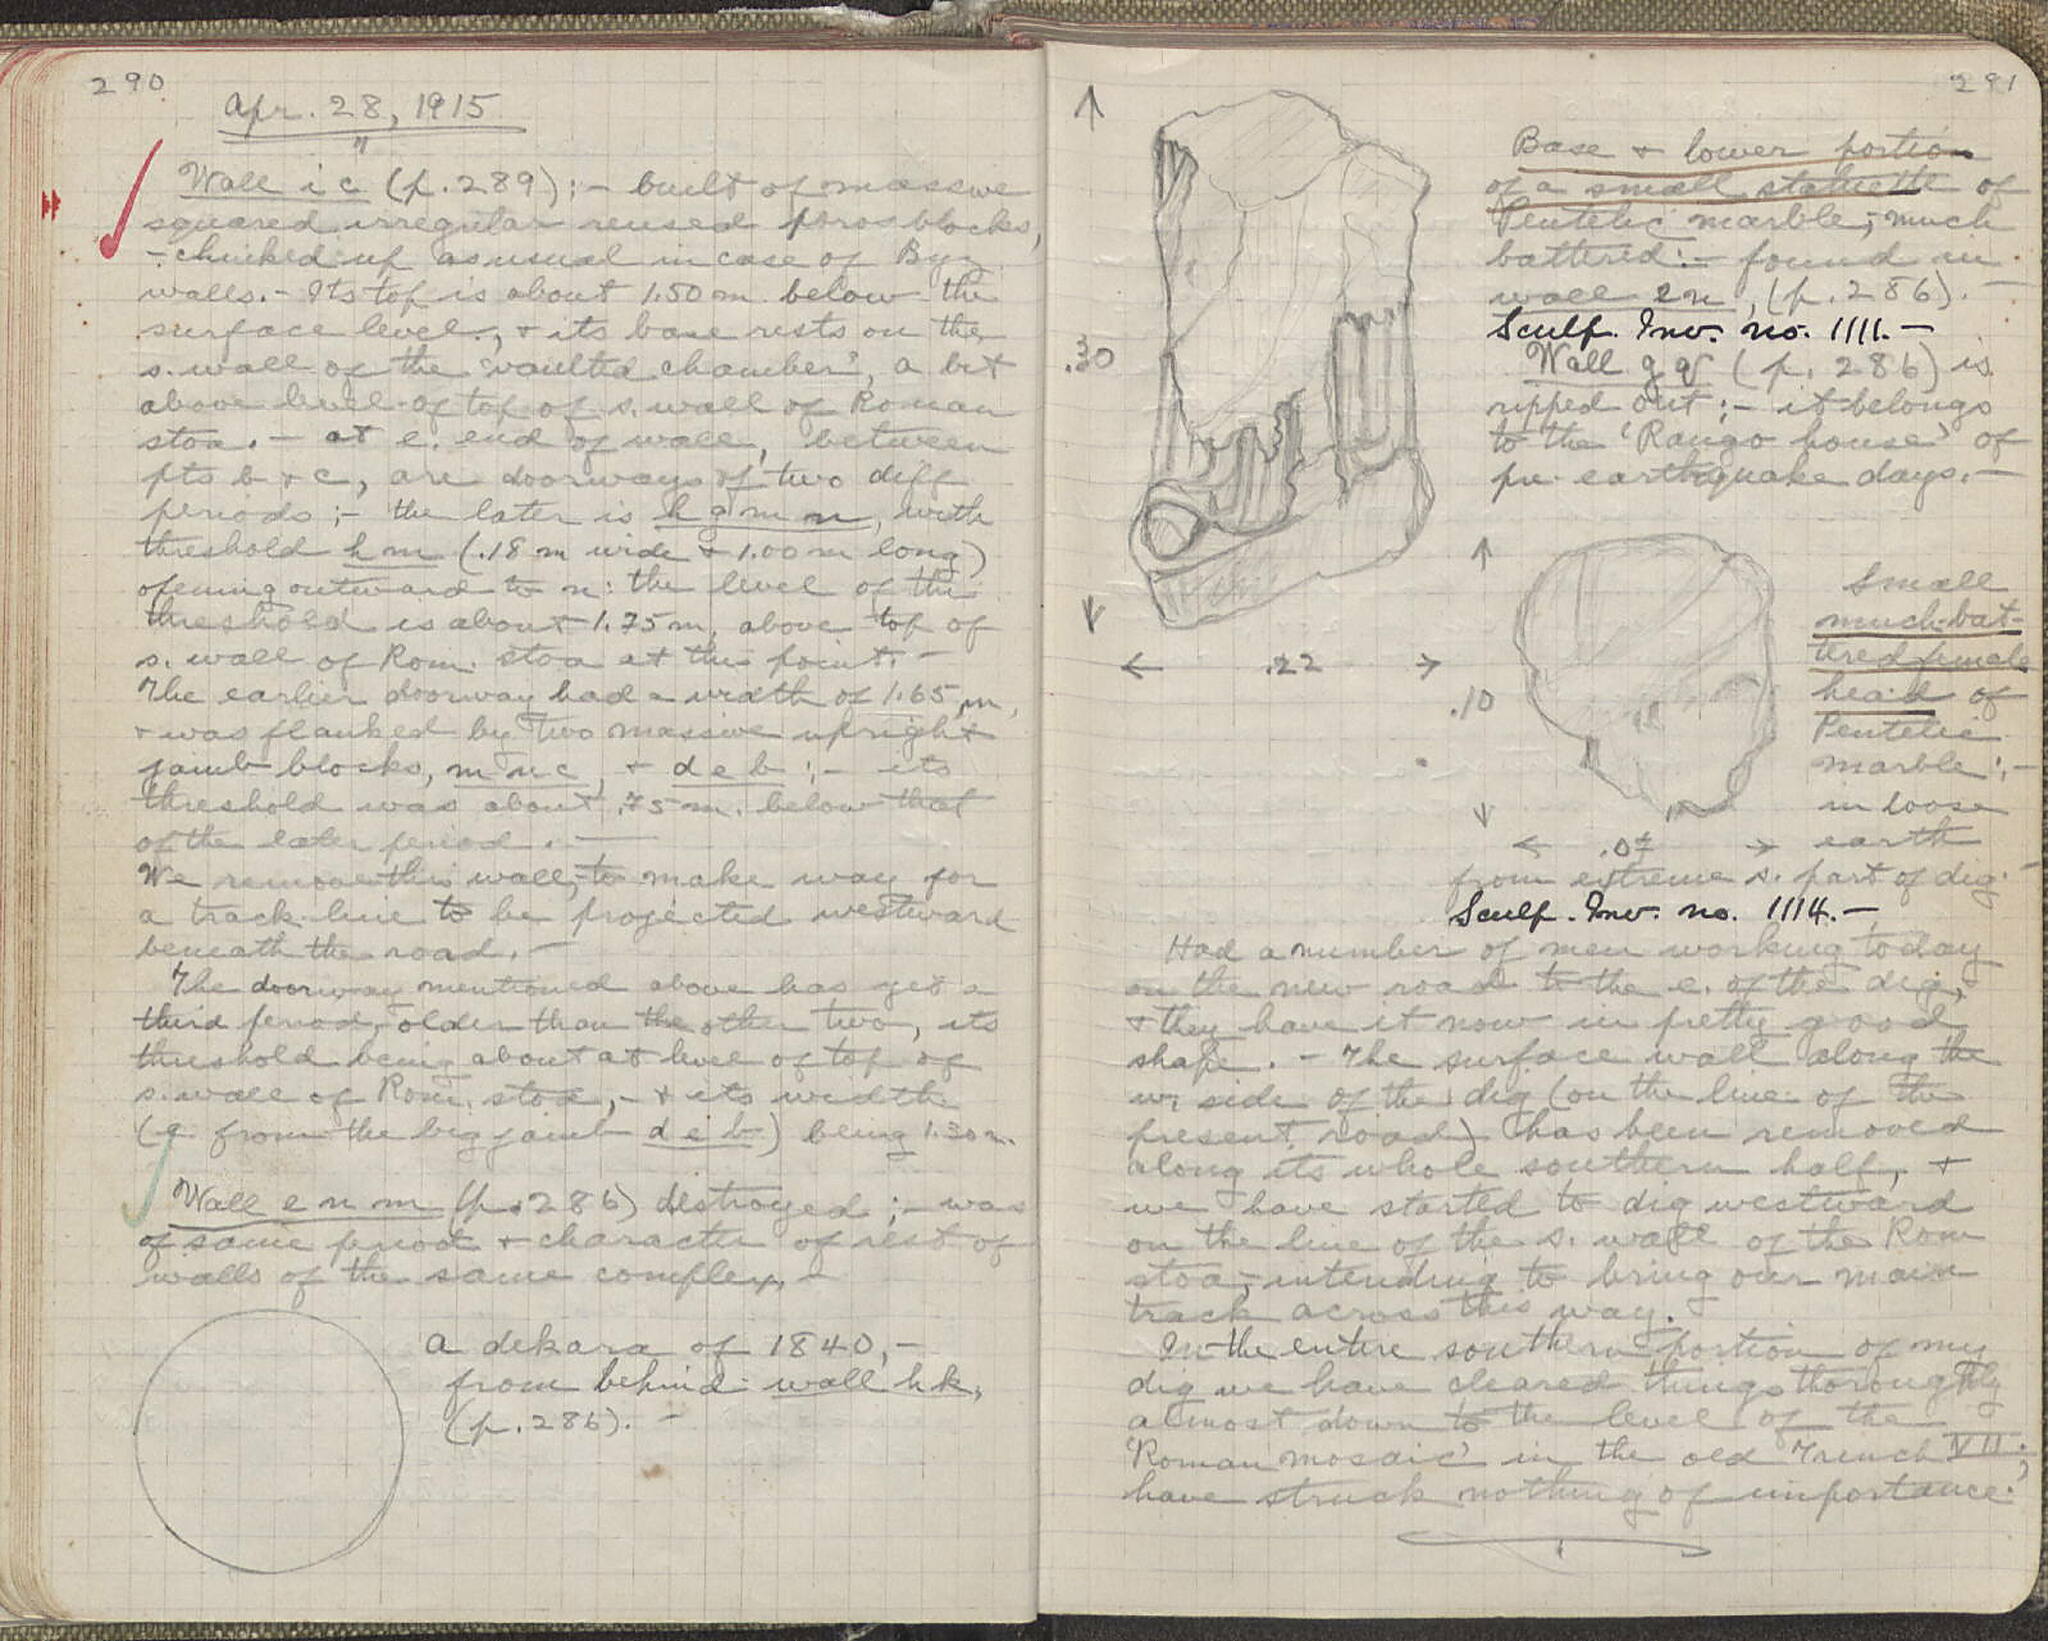 290
Apr. 28, 1915
"
Wall i c (p. 289) :- built of massive
squared irregular reused poros blocks,
- chinked up as usual in case of Byz
walls. - Its top is about 1.50 m. below the
surface level, + its base rests on the
s. wall of the 'vaulted chamber', a bit
above level of top of s. wall of Roman
stoa. - at e. end of wall, between
pts b + c, are doorways of two diff
periods ;- the later is h g m n, with
threshold h m (.18 m wide + 1.00 m long)
opening outward to n: the level of this
threshold is about 1.75 m. above top of
s. wall of Rom. stoa at this point. -
The earlier doorway had a width of 1.65 m,
+ was flanked by two massive upright
jamb blocks, m n c, + d e b ;- its
threshold was about .75 m. below that
of the later period. -
We remove this wall, to make way for
a track line to be projected westward
beneath the road. -
The doorway mentioned above has yet a
third period, older than the other two, its
threshold being about at level of top of
s. wall of Rom. stoa, - + its width
( from the big jamb d e b) being 1.30 m.
Wall e n m (p. 286) destroyed ;- was
of same period + character of rest of
walls of the same complex, -
A dekara of 1840, -
from behind wall h k,
(p. 286). -
291
Base + lower portion
of a small statuette of
Pentelic marble, much
battered :- found in
wall e n, (p. 286). -
Sculp. Inv. no. 1111. -
.30
Wall g q (p. 286) is
ripped out ;- it belongs
to the 'Rango house' of
pre earthquake days. -
.22
Small
much-bat-
tered female
head of
Pentelic
marble :-
in loose
earth
.10
.07
from extreme s. part of dig. -
Sculp. Inv. no. 1114. -
Had a number of men working today
on the new road to the e. of the dig,
+ they have it now in pretty good
shape. - The surface wall along the
w. side of the dig (on the line of the
present road) has been removed
along its whole southern half, +
we have started to dig westward
on the line of the s. wall of the Rom
stoa, intending to bring our main
track across this way.
In the entire southern portion of my
dig we have cleared things thoroughly
almost down to the level of the
'Roman mosaic' in the old Trench VII;
have struck nothing of importance.